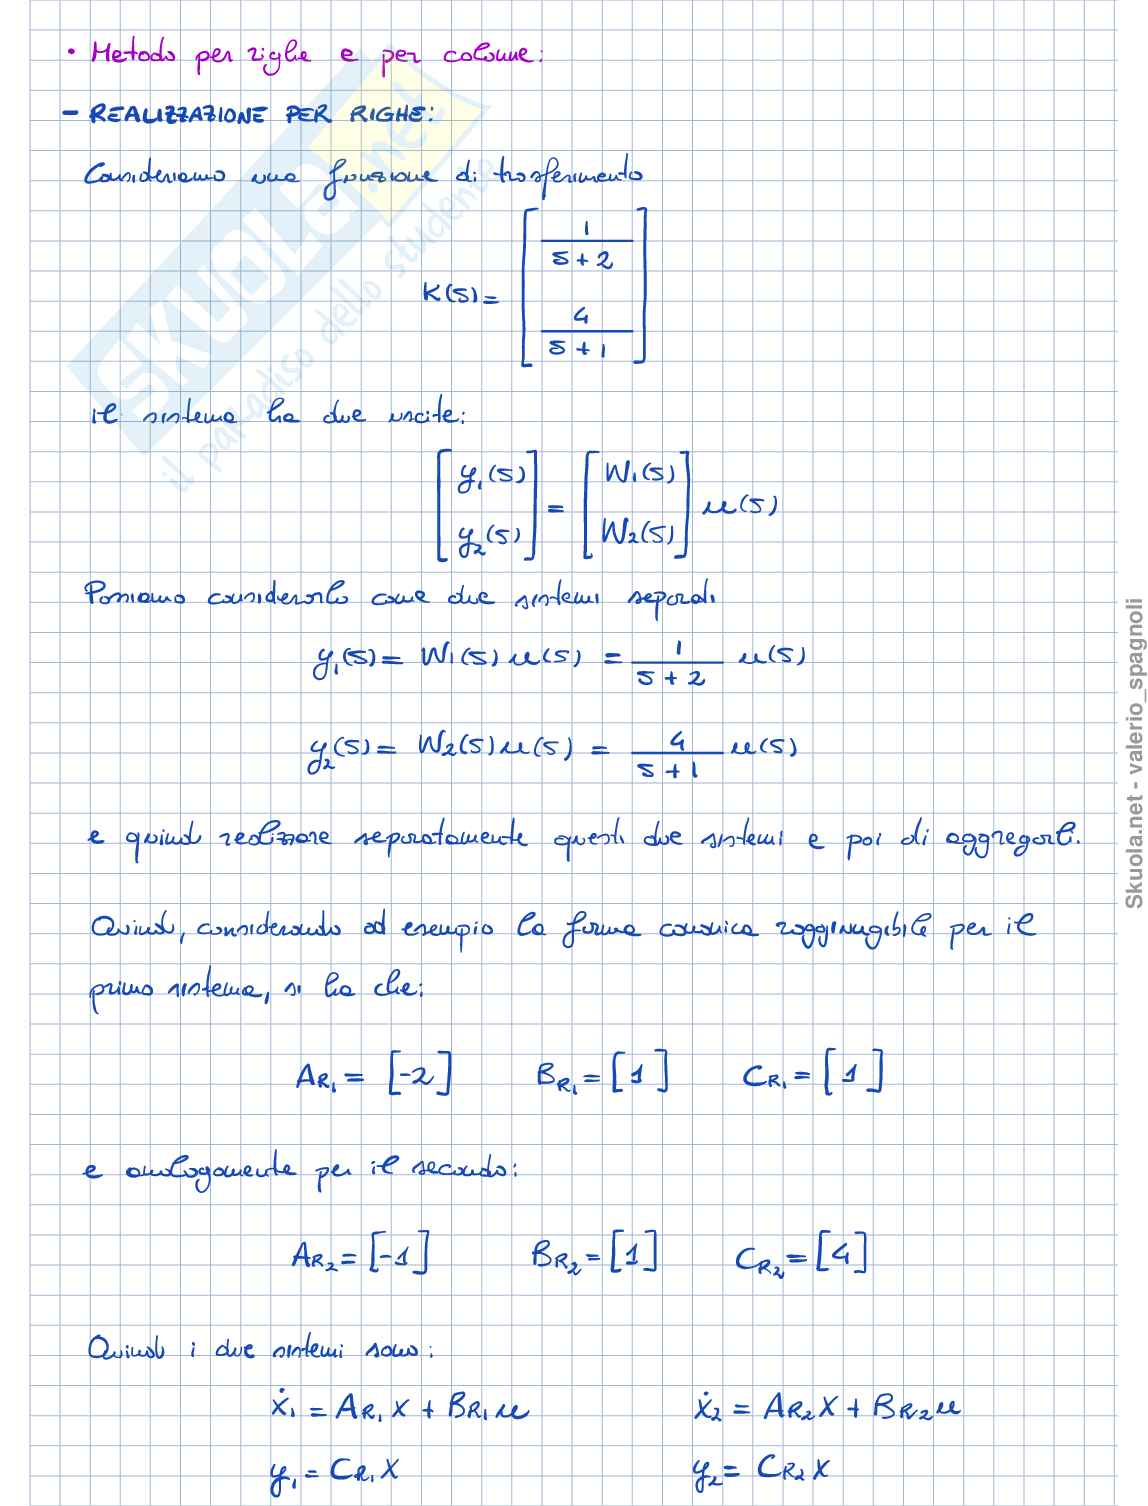 • Metodo per righe e per colonne:
- REALIZZAZIONE PER RIGHE:
Consideriamo una funzione di trasferimento
K(s) = [ 1/(s+2) ; 4/(s+1) ]
il sistema ha due uscite:
[ y₁(s) ; y₂(s) ] = [ W₁(s) ; W₂(s) ] u(s)
Possiamo considerarlo come due sistemi separati
y₁(s) = W₁(s) u(s) = 1/(s+2) u(s)
y₂(s) = W₂(s) u(s) = 4/(s+1) u(s)
e quindi realizzare separatamente questi due sistemi e poi di aggregarli.
Quindi, considerando ad esempio la forma canonica raggiungibile per il
primo sistema, si ha che:
A_R₁ = [-2] B_R₁ = [1] C_R₁ = [1]
e analogamente per il secondo:
A_R₂ = [-1] B_R₂ = [1] C_R₂ = [4]
Quindi i due sistemi sono:
ẋ₁ = A_R₁ x + B_R₁ u ẋ₂ = A_R₂ x + B_R₂ u
y₁ = C_R₁ x y₂ = C_R₂ x
SKUOLA.net
il paradiso dello studente
Skuola.net - valerio_spagnoli